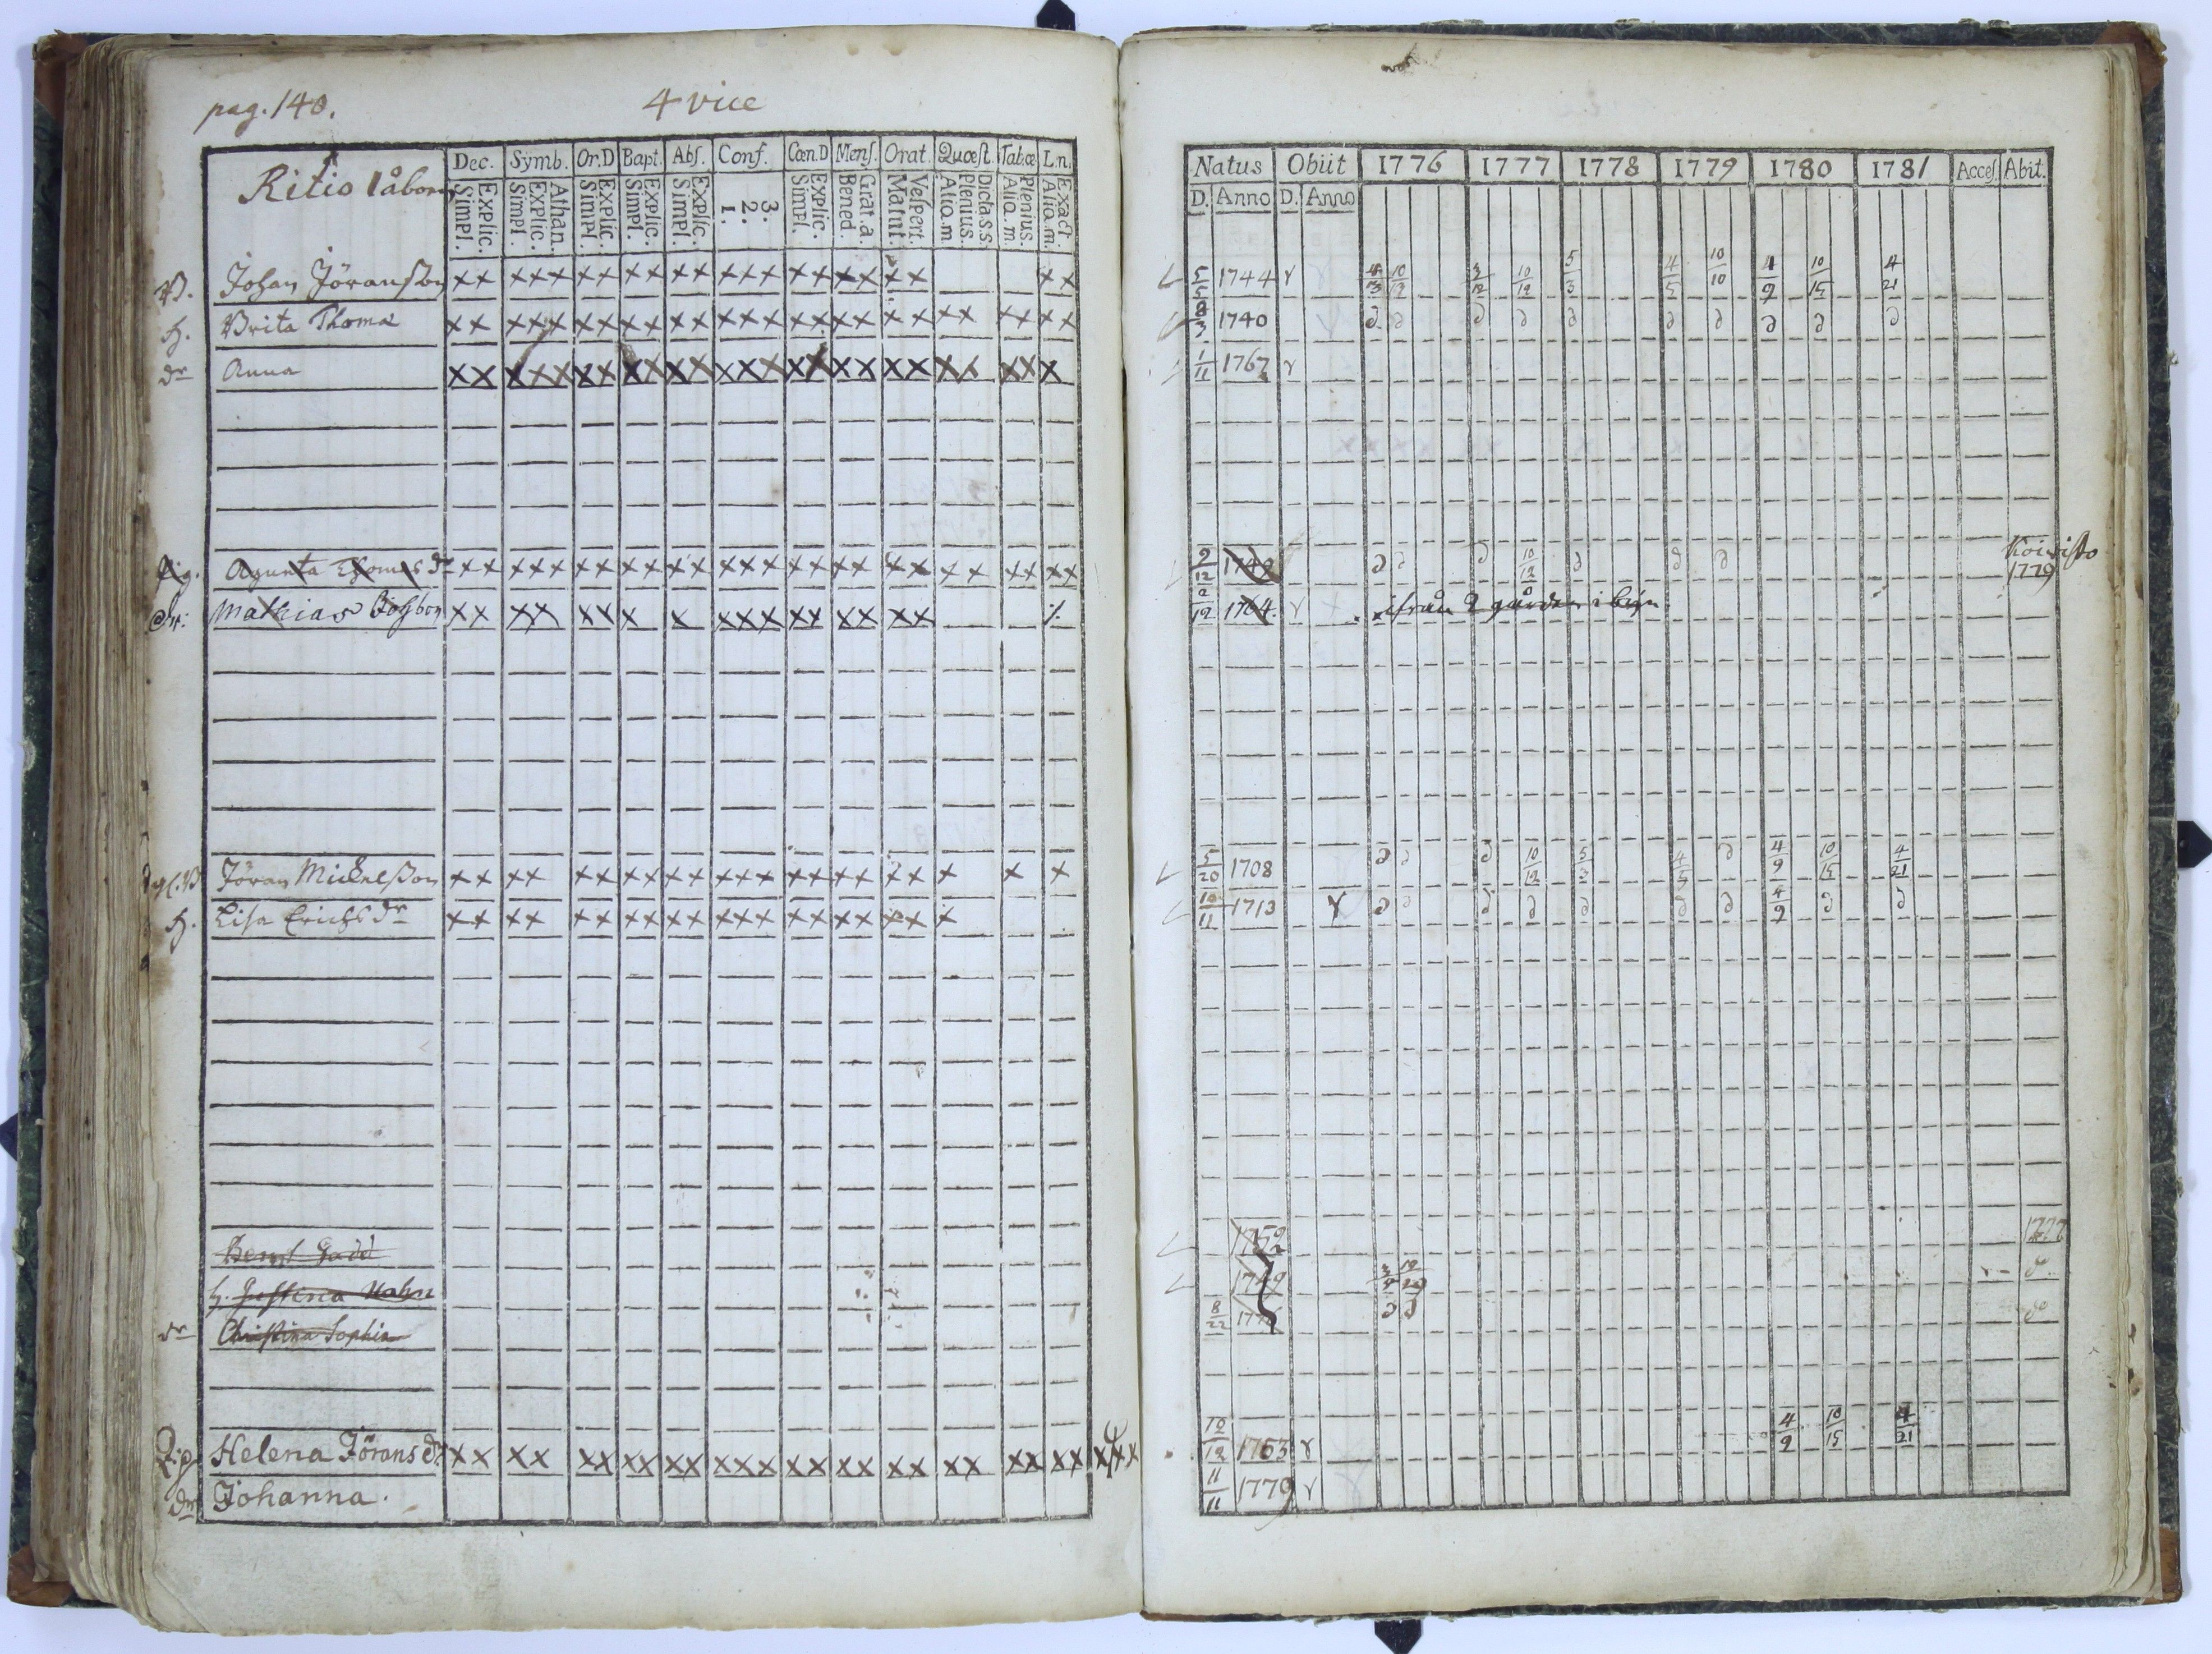 pag. 140.
4 vice
Ritis låbom
Dec. Symb. Or.D Bapt. Abs. Conf. Cœn.D Mens. Orat. Quœst. Tab.œ L.n.
Explic. Simpl. Athan. Explic. Simpl. Explic. Simpl. Explic. Simpl. Explic. Simpl. 3. 2. 1. Explic. Simpl. Grat.a. Bened. Vespert. Matut. Dicta.s.s. Plenius. Aliq.m. Plenius. Aliq.m. Exact. Aliq.m.
Natus Obiit 1776 1777 1778 1779 1780 1781 Acces. Abit.
D. Anno D. Anno
B. Johan Jöransson xx xxx xx xx xx xxx xx xx xx xx 5/5 1744 4/13 10/12 10/12 5/3 4/5 10/10 4/9 10/15 4/21
H. Brita Thomæ xx xxx xx xx xx xxx xx xx xx xx xx xx 8/3 1740 ∂ ∂ ∂ ∂ ∂ ∂ ∂ ∂ ∂ ∂
dr Anna xx xxx xx xx xx xxx xx xx xx xx xx x 1/11 1767
Pig. Agneta Thomæ dr xx xxx xx xx xx xxx xx xx xx xx xx xx 9/12 1749 ∂ ∂ ∂ 10/12 ∂ ∂ ∂ Koivisto 1779
Mathias xx xx xx x x xxx xx xx xx 1764. ifrån 2 gården i byn
Jöran Mickelsson xx xx xx xx xx xxx xx xx xx x x x 5/20 1708 ∂ ∂ ∂ 10/12 5/3 4/5 ∂ 4/9 10/15 4/21
H. Lisa Erichs dr xx xx xx xx xx xxx xx xx xx x 10/11 1713 ∂ ∂ ∂ ∂ ∂ ∂ ∂ 4/9 ∂ ∂
Gadd 1752 1777
H. 1749 10/29 do
dr Christina Sophia 8/22 ∂ ∂ do
Pig Helena Jörans dr xx xx xx xx xx xxx xx xx xx xx xx xx xxx 10/12 1753 4/9 10/15 4/21
dr Johanna. 11/11 1779